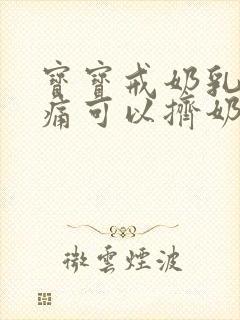 寶寶戒奶乳
痛可以擠奶
微雲煙波